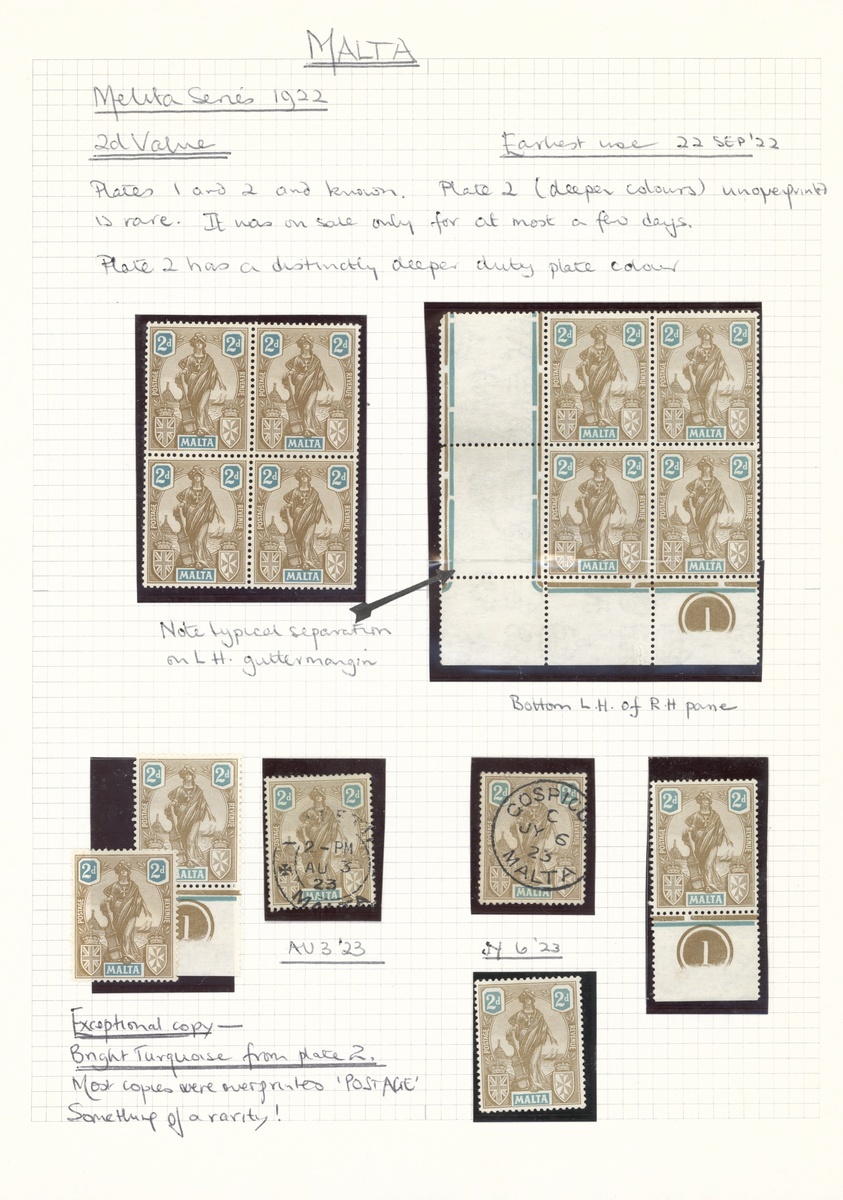 MALTA
Melita Series 1922
2d Value
Earliest use 22 SEP '22
Plates 1 and 2 and known. Plate 2 (deeper colours) unoverprinted
is rare. It was on sale only for at most a few days.
Plate 2 has a distinctly deeper duty plate colour
2d 2d 2d 2d
POSTAGE REVENUE POSTAGE REVENUE
MALTA MALTA
2d 2d 2d 2d
POSTAGE REVENUE POSTAGE REVENUE
MALTA MALTA
2d 2d 2d 2d
POSTAGE REVENUE POSTAGE REVENUE
MALTA MALTA
2d 2d 2d 2d
POSTAGE REVENUE POSTAGE REVENUE
MALTA MALTA
1
Note typical separation
on L.H. guttermargin
Bottom L.H. of R.H pane
2d 2d
POSTAGE REVENUE
LTA
1
2d 2d
POSTAGE REVENUE
MALTA
2d 2d
POSTAGE REVENUE
2-PM
AU 3
23
2d 2d
COSPICU
C
JY 6
23
MALTA
2d 2d
POSTAGE REVENUE
MALTA
1
AU 3 '23
JY 6 '23
2d 2d
POSTAGE REVENUE
MALTA
Exceptional copy —
Bright Turquoise from plate 2.
Most copies were overprinted 'POSTAGE'
Something of a rarity!